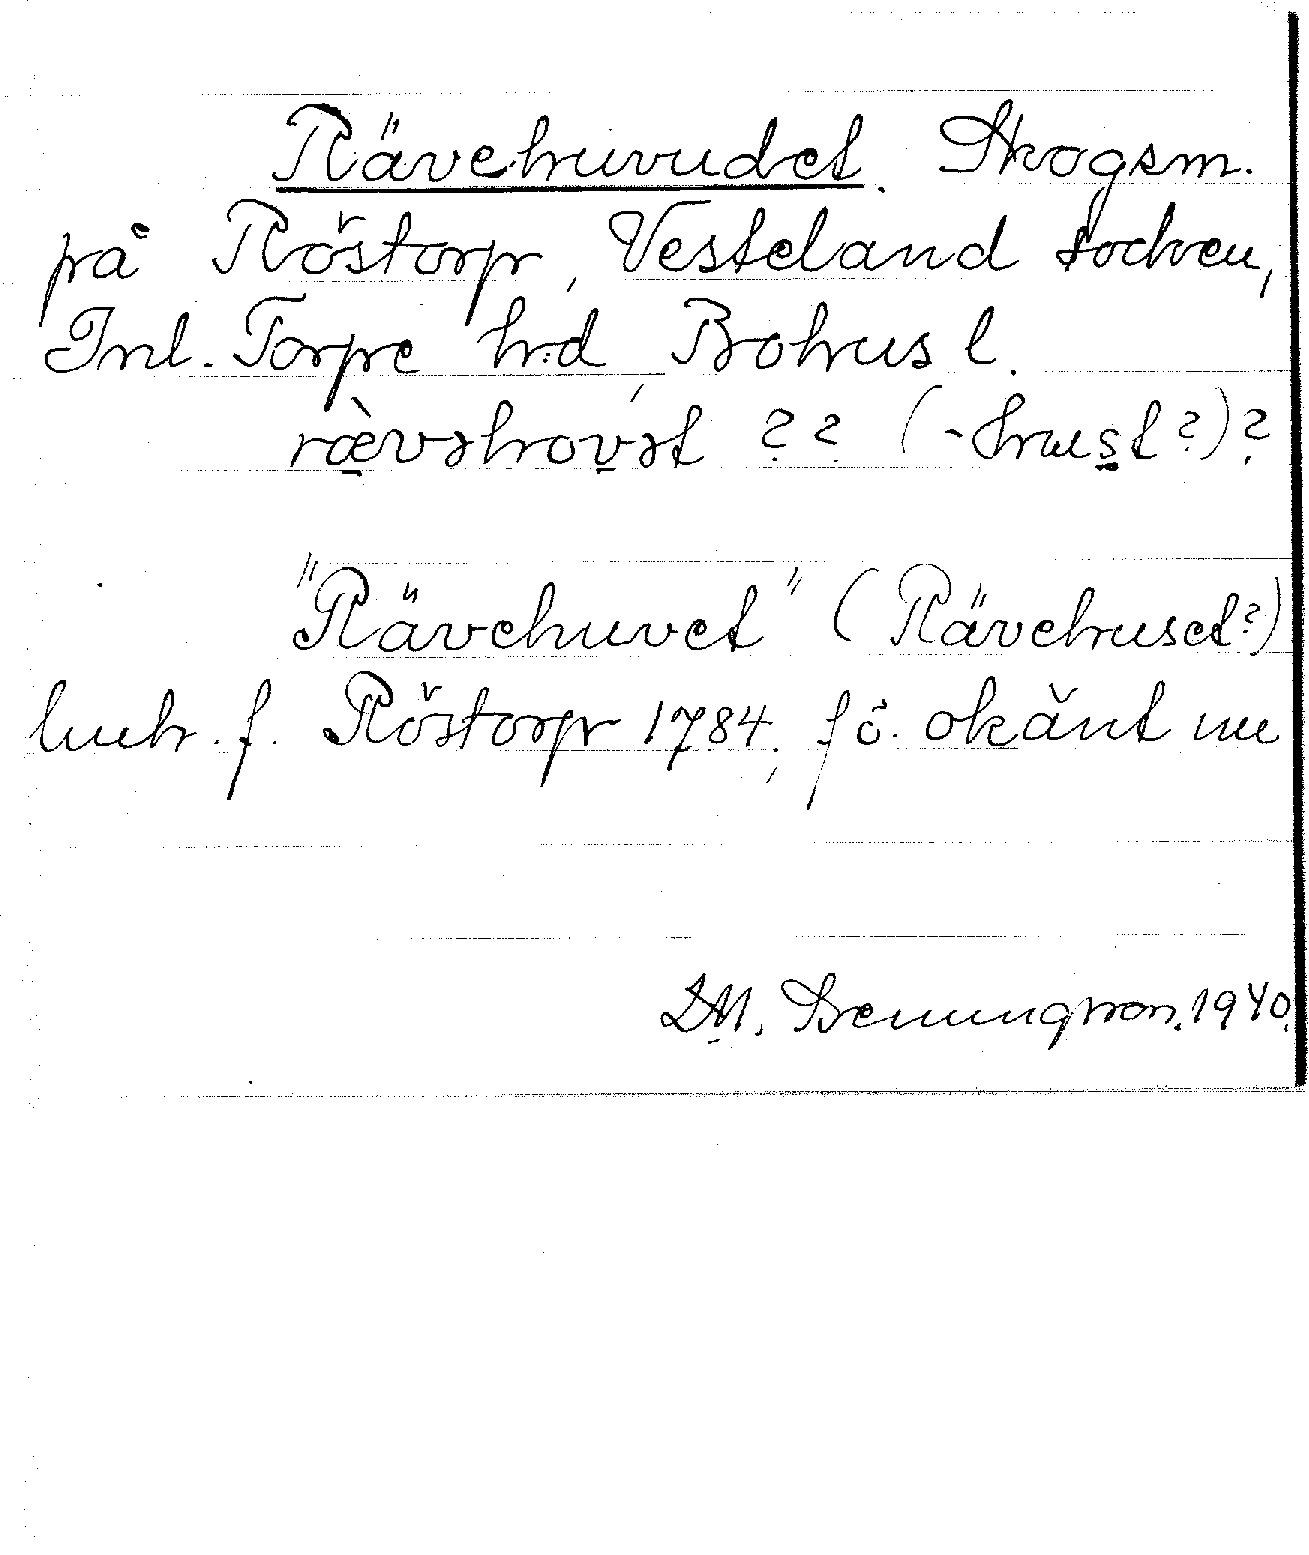 Rävehuvudet. Skogsm.
på Röstorp, Vesteland socken,
Inl. Torpe h:d, Bohusl.
rævəhovət ?? (-husət?)?
"Rävehuvet" (Rävehuset?)
Röstorp 1784, fö. okänt nu
1940.